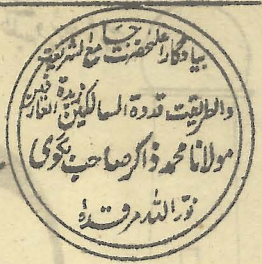 بیادگار اعلیٰحضرت جامع الشریعۃ
والطریقت قدوۃ السالکین زبدۃ العارفین
مولانا محمد ذاکر صاحب بگوی
نوّر اللہ مرقدہٗ